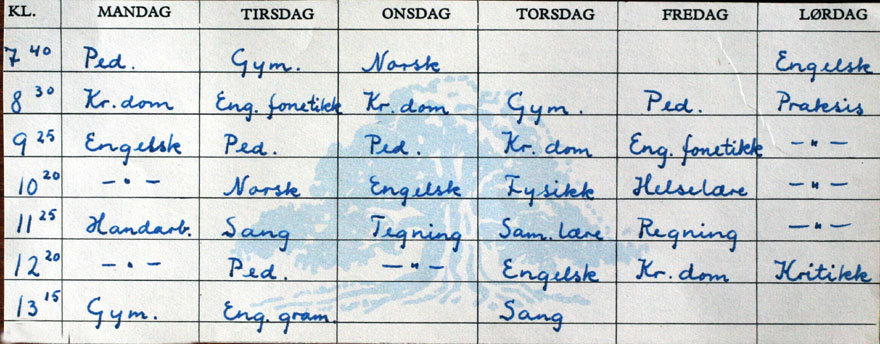 KL. MANDAG TIRSDAG ONSDAG TORSDAG FREDAG LØRDAG
7 40 Ped. Gym. Norsk Engelsk
8 30 Kr. dom Eng. fonetikk Kr. dom Gym. Ped. Praksis
9 25 Engelsk Ped. Ped. Kr. dom Eng. fonetikk — " —
10 20 — " — Norsk Engelsk Fysikk Helselære — " —
11 25 Handarb. Sang Tegning Sam. lære Regning — " —
12 20 — " — Ped. — " — Engelsk Kr. dom Kritikk
13 15 Gym. Eng. gram. Sang